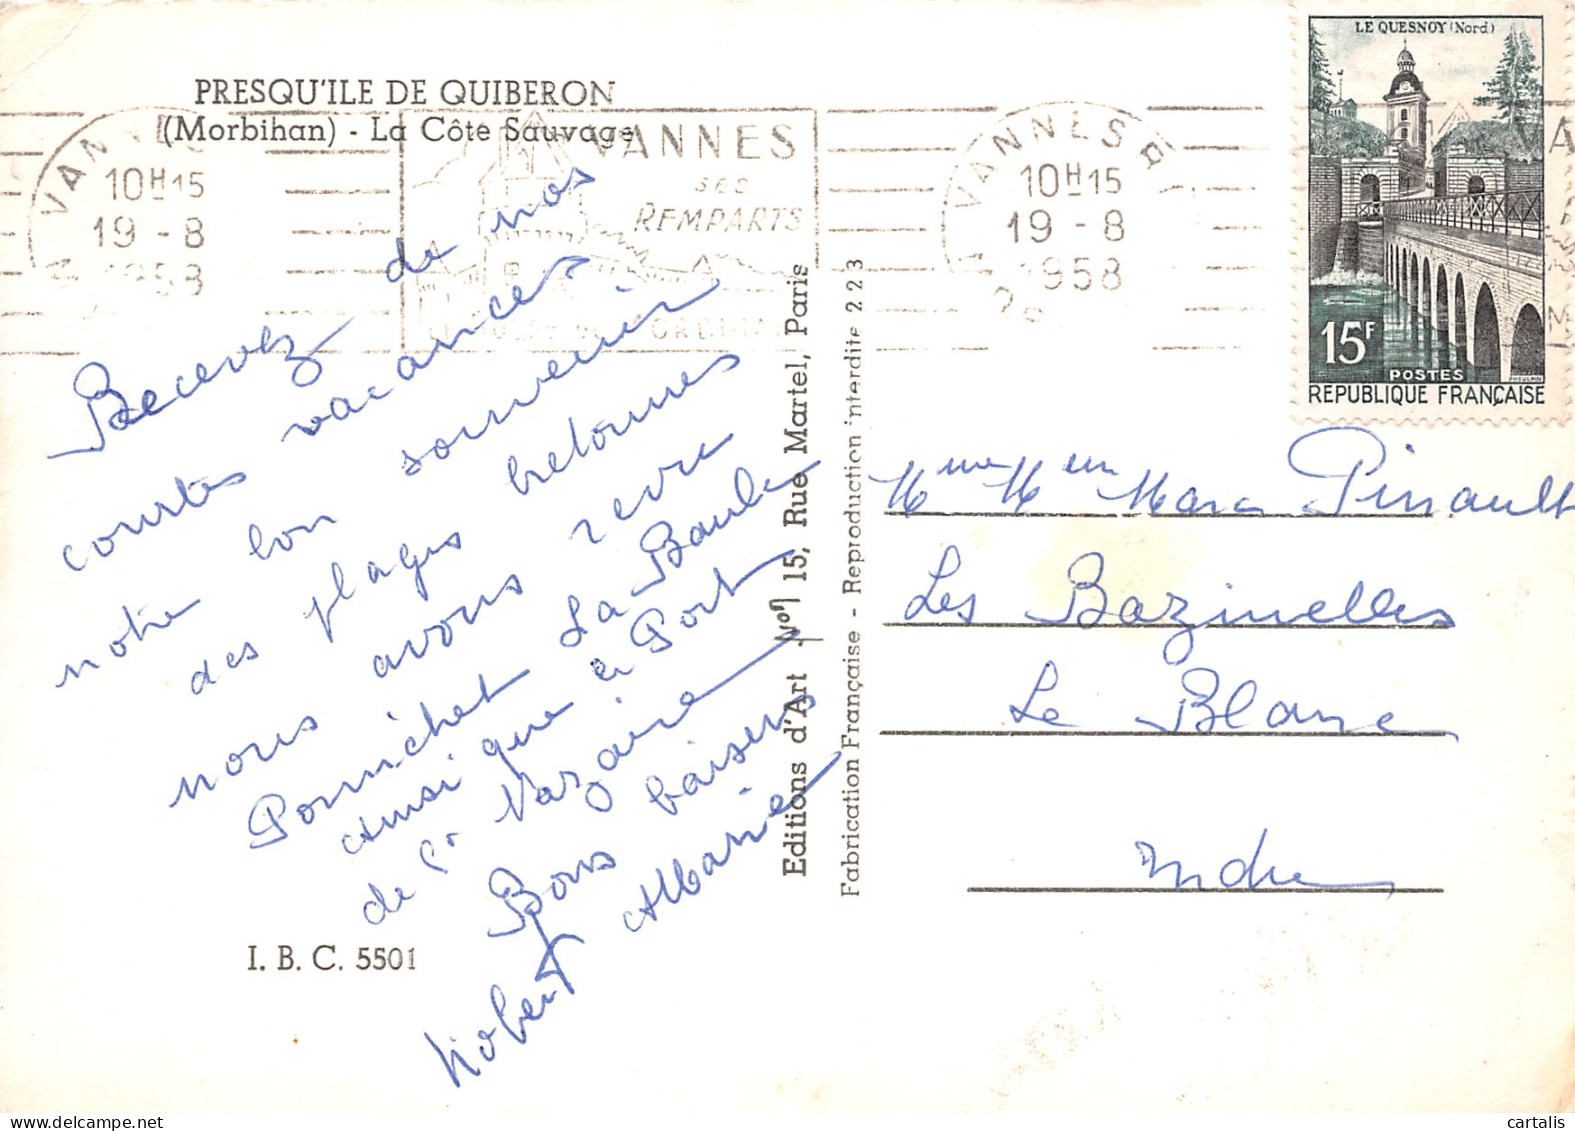 PRESQU'ILE DE QUIBERON
(Morbihan) - La Côte Sauvage
VANNES
10H15
19 - 8
1958
VANNES
SES
REMPARTS
VANNES
10H15
19 - 8
1958
LE QUESNOY (Nord)
15F
POSTES
REPUBLIQUE FRANÇAISE
Recevez de nos
courtes vacances
notre bon souvenir
des plages bretonnes
nous avons revu
Pornichet La Baule
ainsi que le Port
de St Nazaire
Bons baisers
Robert Marie
I. B. C. 5501
Editions d'Art 15, Rue Martel, Paris
Fabrication Française - Reproduction interdite 223
Mme Marc Pinault
Les Bazinelles
Le Blanc
Indre
cartalis